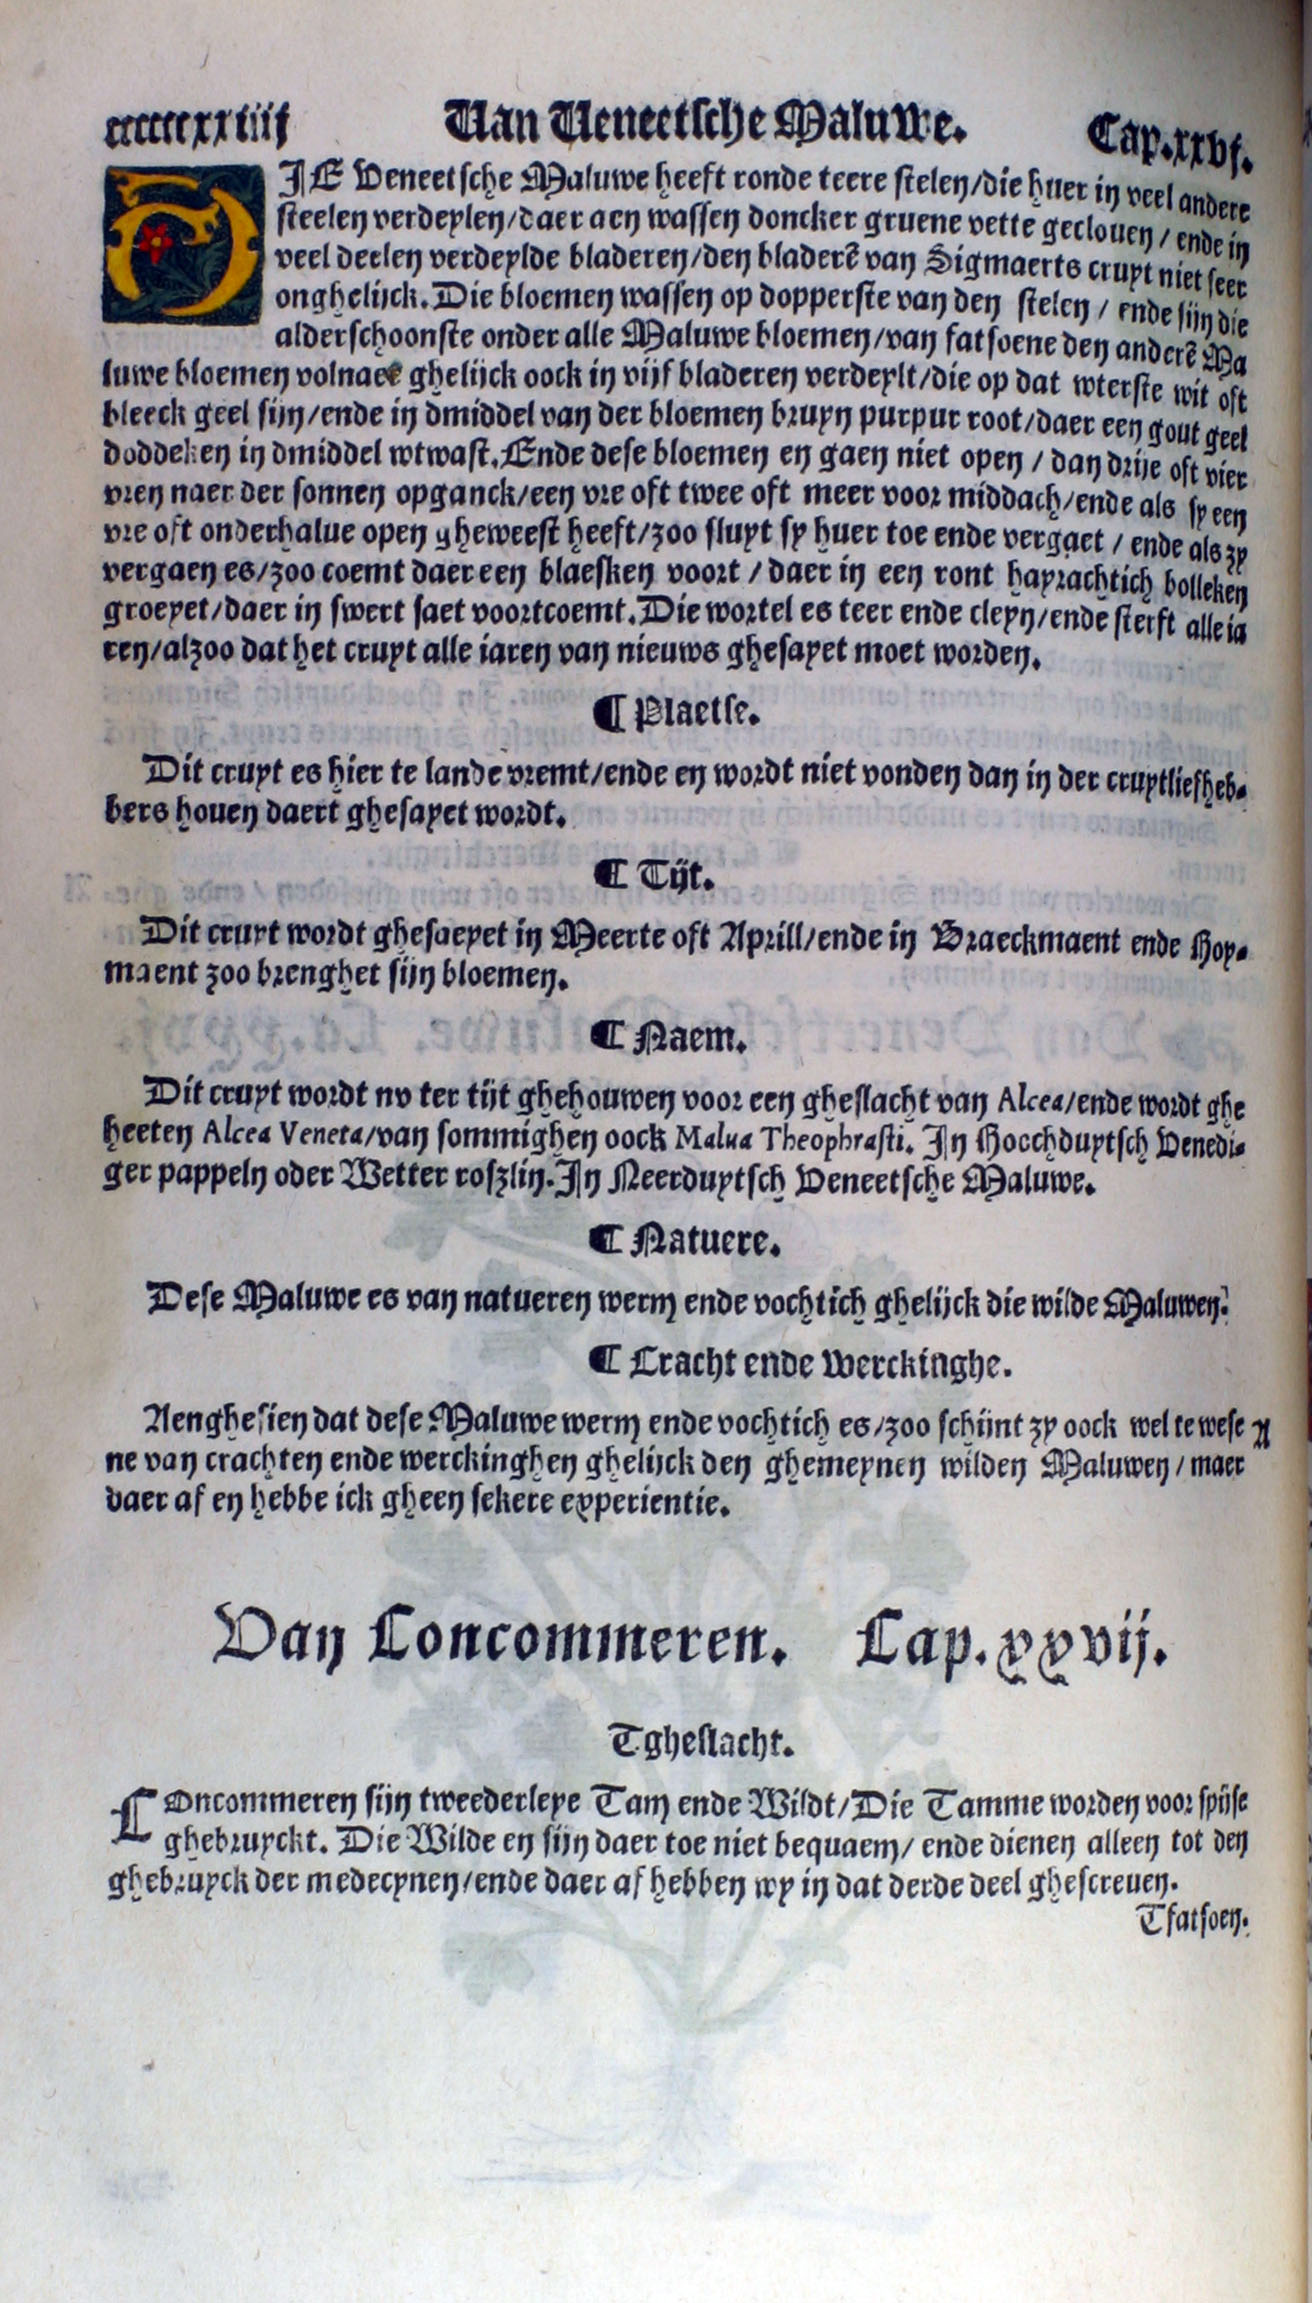 ccccccxxiiij Van Veneetsche Maluwe. Cap.xxvj.
DIE Veneetsche Maluwe heeft ronde teere stelen/die huer in veel andere
steelen verdeylen/daer aen wassen doncker gruene vette geclouen/ende in
veel deelen verdeylde bladeren/den bladerē van Sigmaerts cruyt niet seer
onghelijck. Die bloemen wassen op dopperste van den stelen/ende sijn die
alderschoonste onder alle Maluwe bloemen/van fatsoene den anderē Ma
luwe bloemen volnaer ghelijck oock in vijf bladeren verdeylt/die op dat wterste wit oft
bleeck geel sijn/ende in dmiddel van der bloemen bruyn purpur root/daer een gout geel
doddeken in dmiddel wtwast. Ende dese bloemen en gaen niet open/dan drije oft vier
vren naer der sonnen opganck/een vre oft twee oft meer voor middach/ende als sy een
vre oft onderhalue open gheweest heeft/zoo sluyt sy huer toe ende vergaet/ende als zy
vergaen es/zoo coemt daer een blaesken voort/daer in een ront hayrachtich bolleken
groeyet/daer in swert saet voortcoemt. Die wortel es teer ende cleyn/ende sterft alle ia
ren/alzoo dat het cruyt alle iaren van nieuws ghesayet moet worden.
¶ Plaetse.
Dit cruyt es hier te lande vremt/ende en wordt niet vonden dan in der cruytliefheb-
bers houen daert ghesayet wordt.
¶ Tijt.
Dit cruyt wordt ghesaeyet in Meerte oft Aprill/ende in Braeckmaent ende Hoy-
maent zoo brenghet sijn bloemen.
¶ Naem.
Dit cruyt wordt nv ter tijt ghehouwen voor een gheslacht van Alcea/ende wordt ghe
heeten Alcea Veneta/van sommighen oock Malua Theophrasti. In Hoochduytsch Venedi-
ger pappeln oder Wetter roszlin. In Neerduytsch Veneetsche Maluwe.
¶ Natuere.
Dese Maluwe es van natueren werm ende vochtich ghelijck die wilde Maluwen.
¶ Cracht ende Werckinghe.
Aenghesien dat dese Maluwe werm ende vochtich es/zoo schijnt zy oock wel te wese A
ne van crachten ende werckinghen ghelijck den ghemeynen wilden Maluwen/maer
daer af en hebbe ick gheen sekere experientie.
Van Concommeren. Cap.xxvij.
Tgheslacht.
COncommeren sijn tweederleye Tam ende Wildt/Die Tamme worden voor spijse
ghebruyckt. Die Wilde en sijn daer toe niet bequaem/ende dienen alleen tot den
ghebruyck der medecynen/ende daer af hebben wy in dat derde deel ghescreuen.
Tfatsoen.